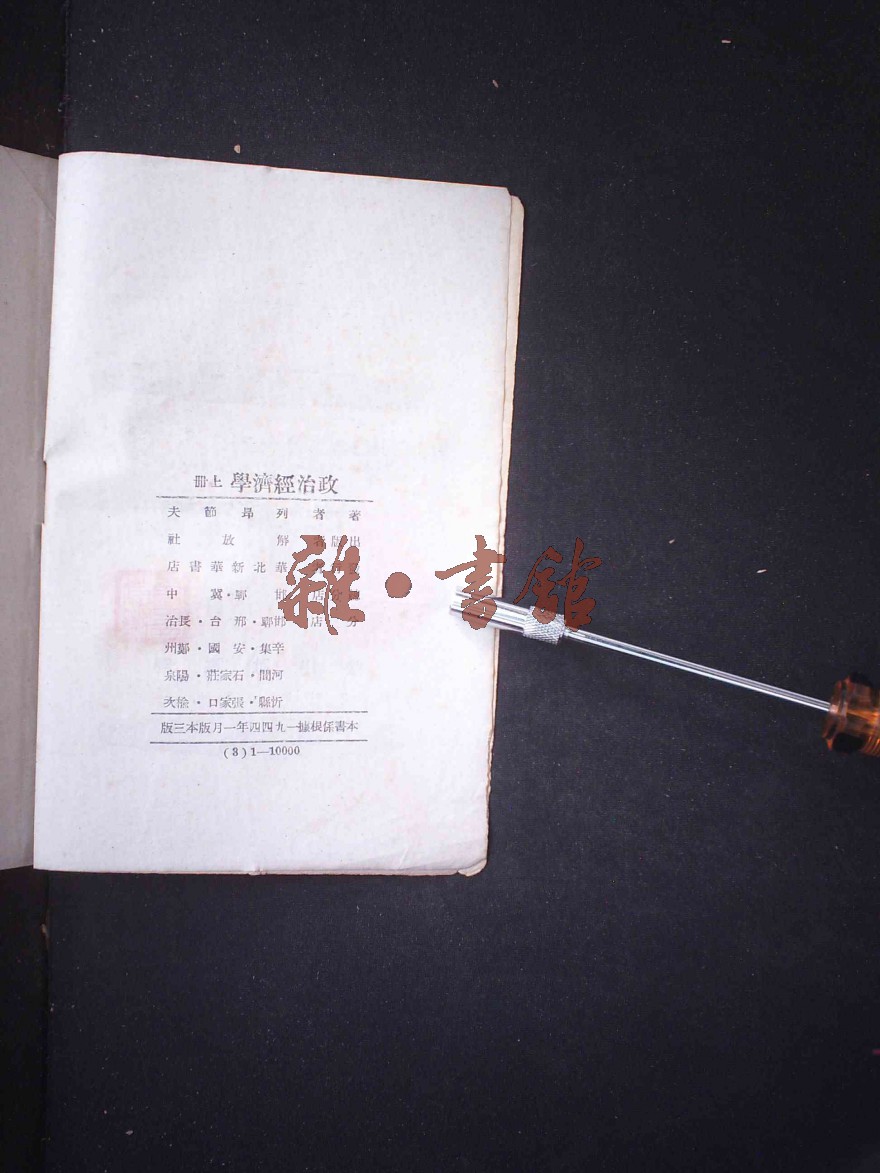 政治經濟學 上冊
著者 列昂節夫
出版者 解放社
華北新華書店
邯鄲·冀中
分店 邯鄲·邢台·長治
辛集·安國·鄭州
河間·石家莊·陽泉
沂縣·張家口·榆次
本書係根據一九四四年一月版本三版
(3)1—10000
雜·書館